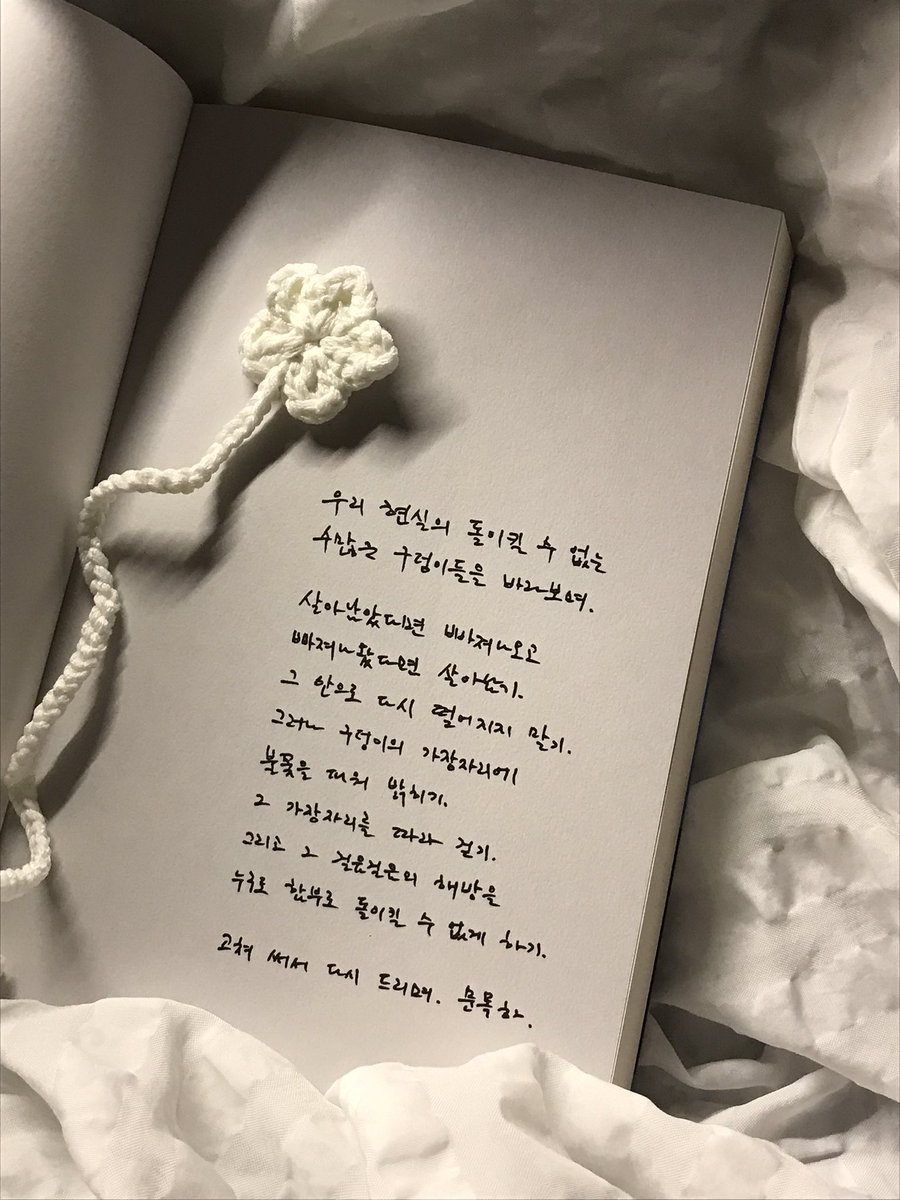 우리 현실의 돌이킬 수 없는
수많은 구덩이들을 바라보며.
살아남았다면 빠져나오고
빠져나왔다면 살아남기.
그 안으로 다시 떨어지지 말기.
그러나 구덩이의 가장자리에
불꽃을 태워 밝히기.
그 가장자리를 따라 걷기.
그리고 그 걸음걸음의 해방을
누구도 함부로 돌이킬 수 없게 하기.
고쳐 써서 다시 드리며. 문목하.